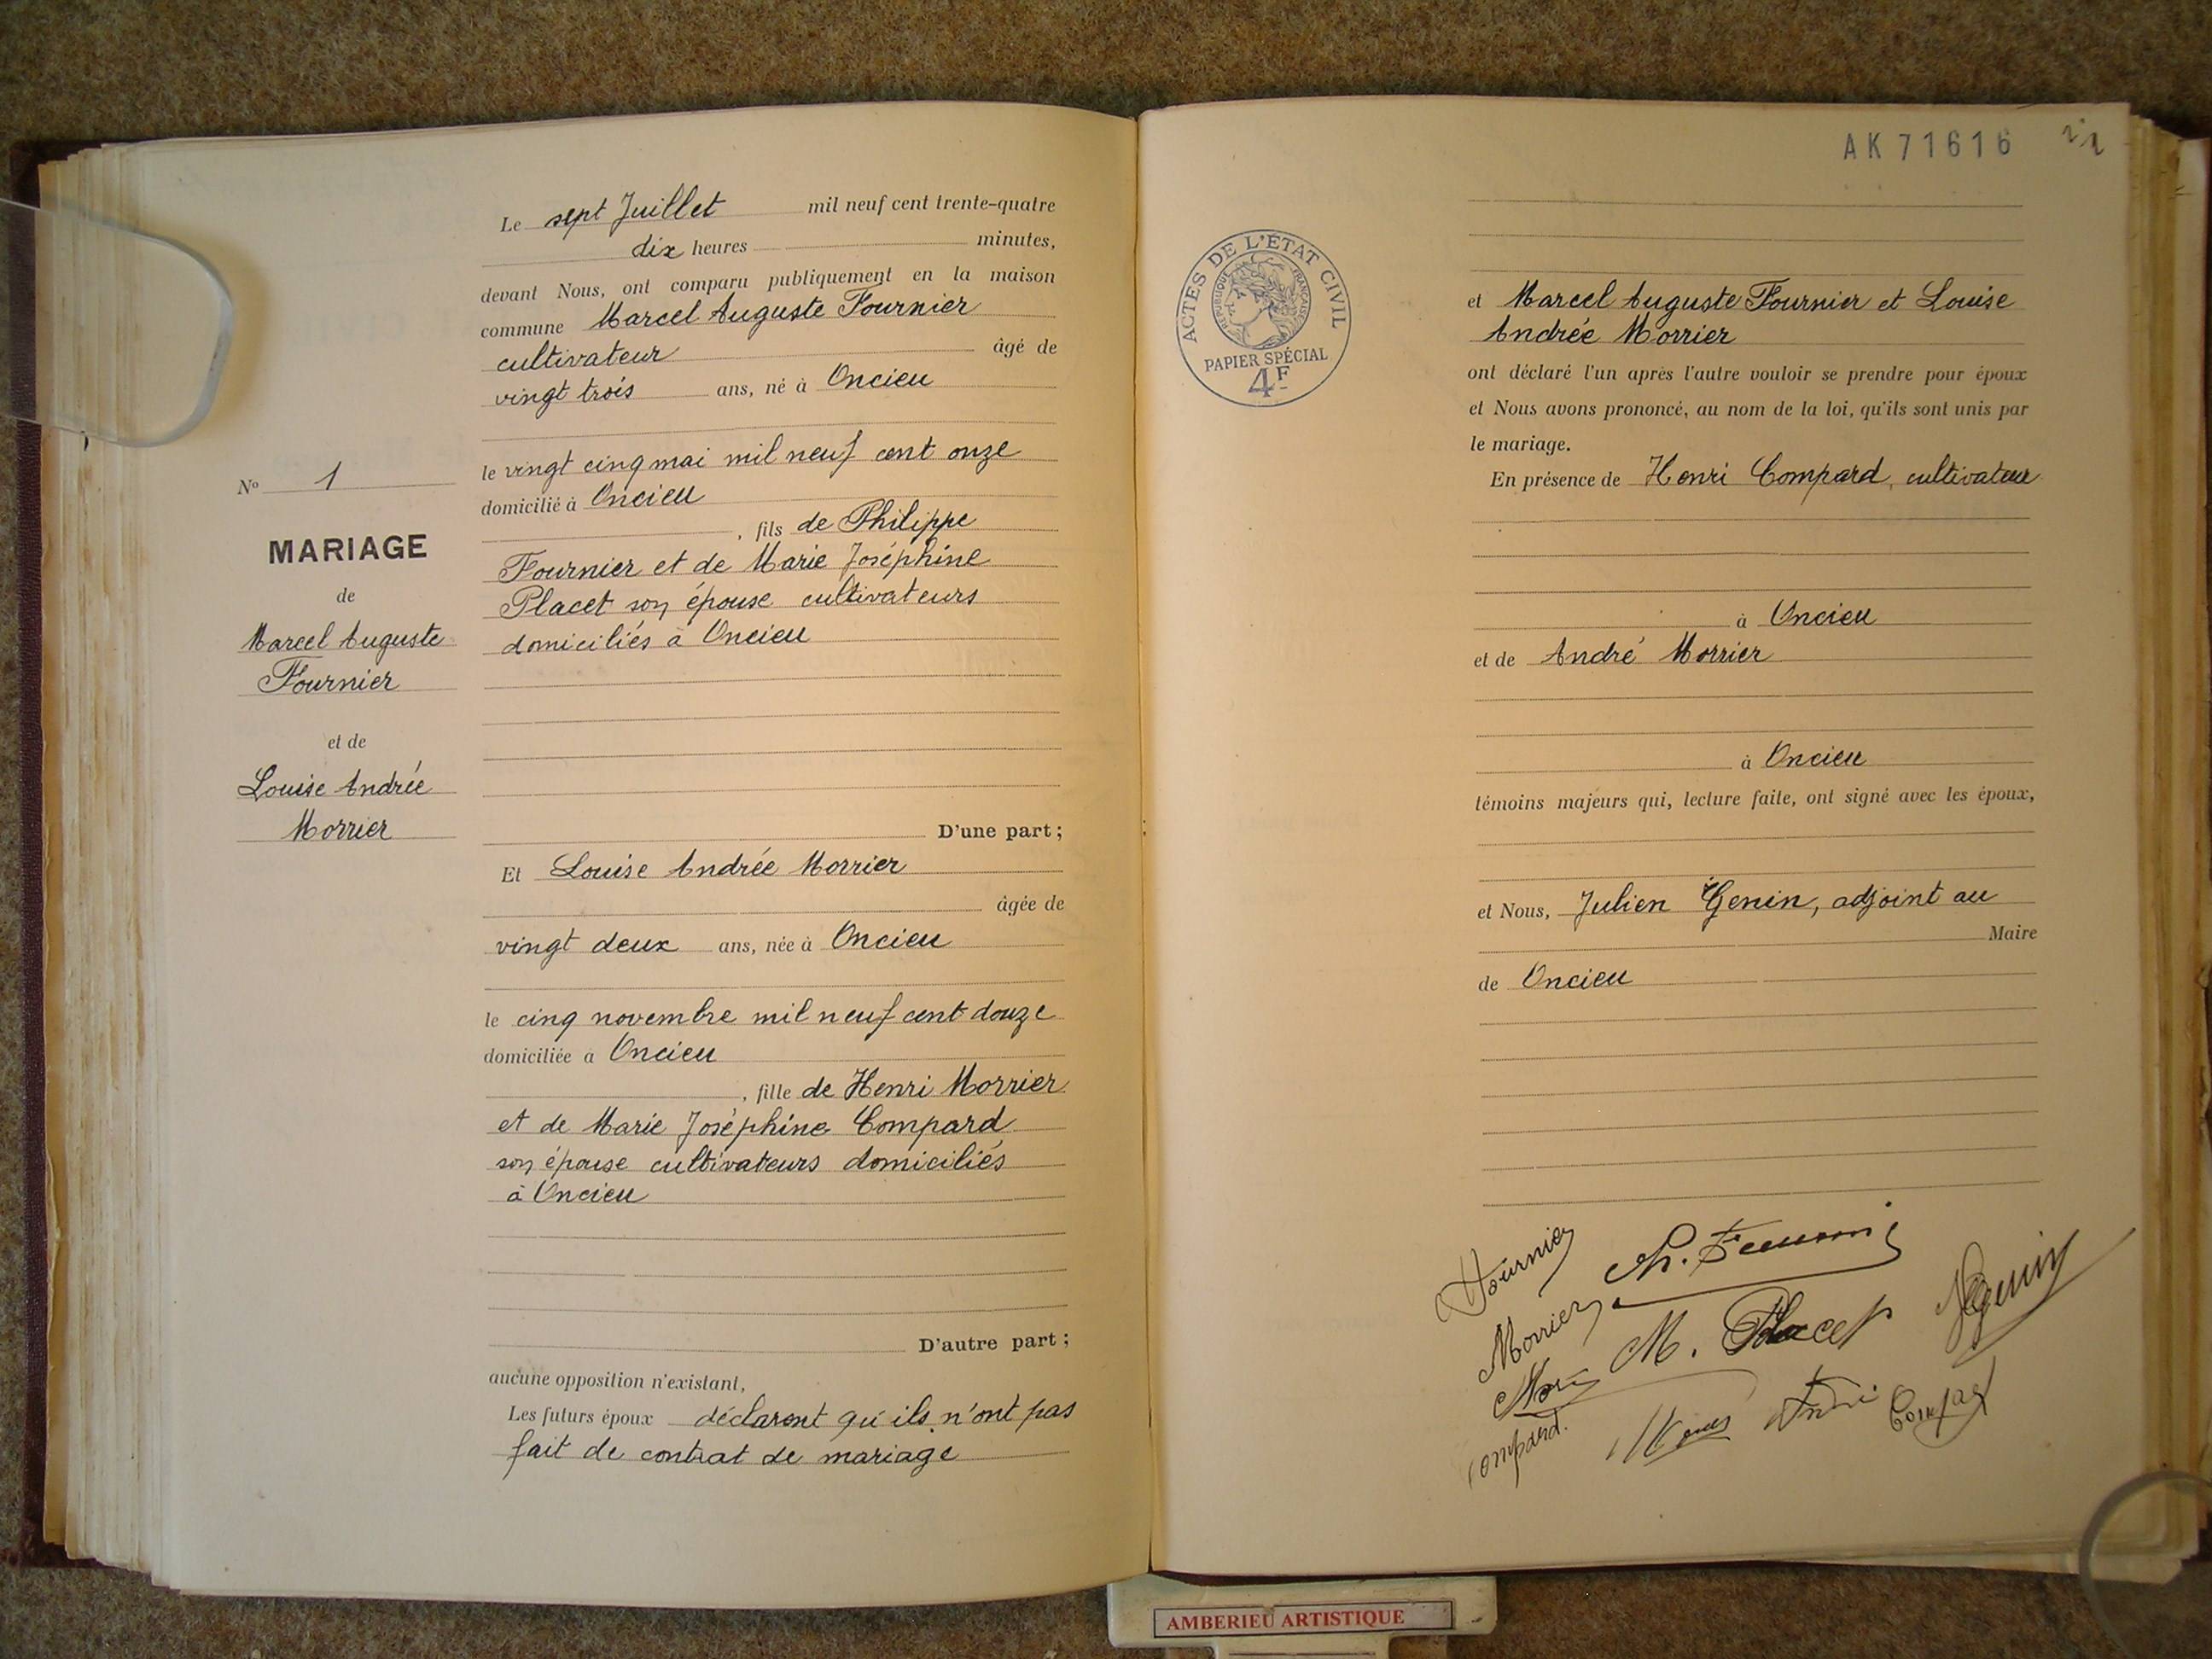 Le sept Juillet mil neuf cent trente-quatre
dix heures minutes,
devant Nous, ont comparu publiquement en la maison
commune Marcel Auguste Fournier
cultivateur âgé de
vingt trois ans, né à Oncieu
le vingt cinq mai mil neuf cent onze
domicilié à Oncieu
, fils de Philippe
Fournier et de Marie Joséphine
Placet son épouse cultivateurs
domiciliés à Oncieu
D'une part ;
Et Louise Andrée Morrier
âgée de
vingt deux ans, née à Oncieu
le cinq novembre mil neuf cent douze
domiciliée à Oncieu
, fille de Henri Morrier
et de Marie Joséphine Compard
son épouse cultivateurs domiciliés
à Oncieu
D'autre part ;
aucune opposition n'existant,
Les futurs époux déclarent qu'ils n'ont pas
fait de contrat de mariage
No 1
MARIAGE
de
Marcel Auguste
Fournier
et de
Louise Andrée
Morrier
AK71616
ACTES DE L'ÉTAT CIVIL
RÉPUBLIQUE FRANÇAISE
PAPIER SPÉCIAL
4F
et Marcel Auguste Fournier et Louise
Andrée Morrier
ont déclaré l'un après l'autre vouloir se prendre pour époux
et Nous avons prononcé, au nom de la loi, qu'ils sont unis par
le mariage.
En présence de Henri Compard, cultivateur
à Oncieu
et de André Morrier
à Oncieu
témoins majeurs qui, lecture faite, ont signé avec les époux,
et Nous, Julien Genin, adjoint au
Maire
de Oncieu
Fournier
Ph. Fournier
Morrier
M. Placet
JGenin
Compard.
André
AMBERIEU ARTISTIQUE